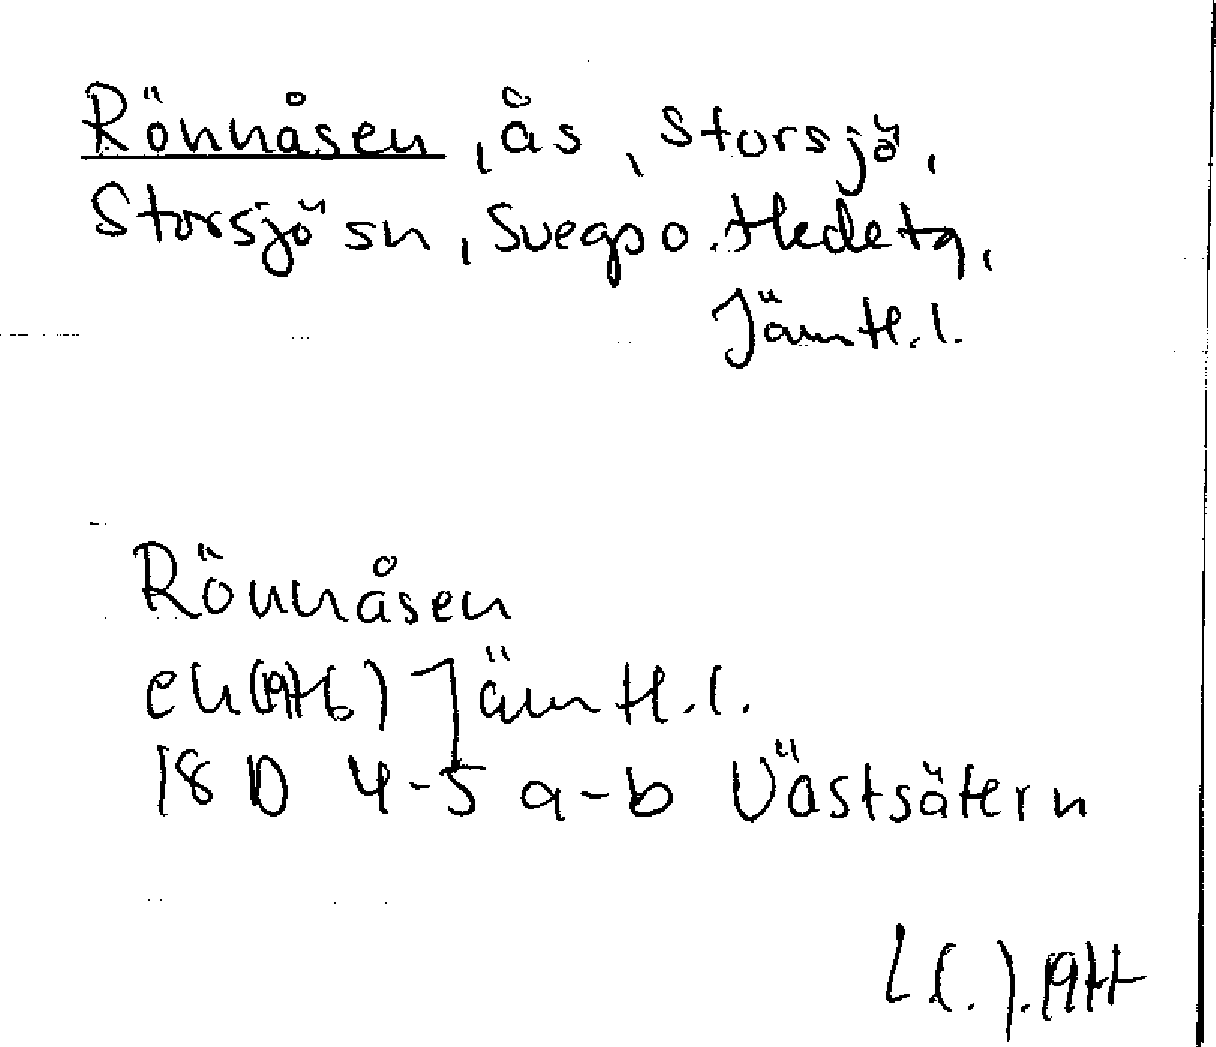 Rönnåsen, ås, Storsjö,
Storsjö sn, Svegs o. Hede tg,
Jämtl. l.
Rönnåsen
ek(1976) Jämtl. l.
18 D 4-5 a-b Västsätern
1977